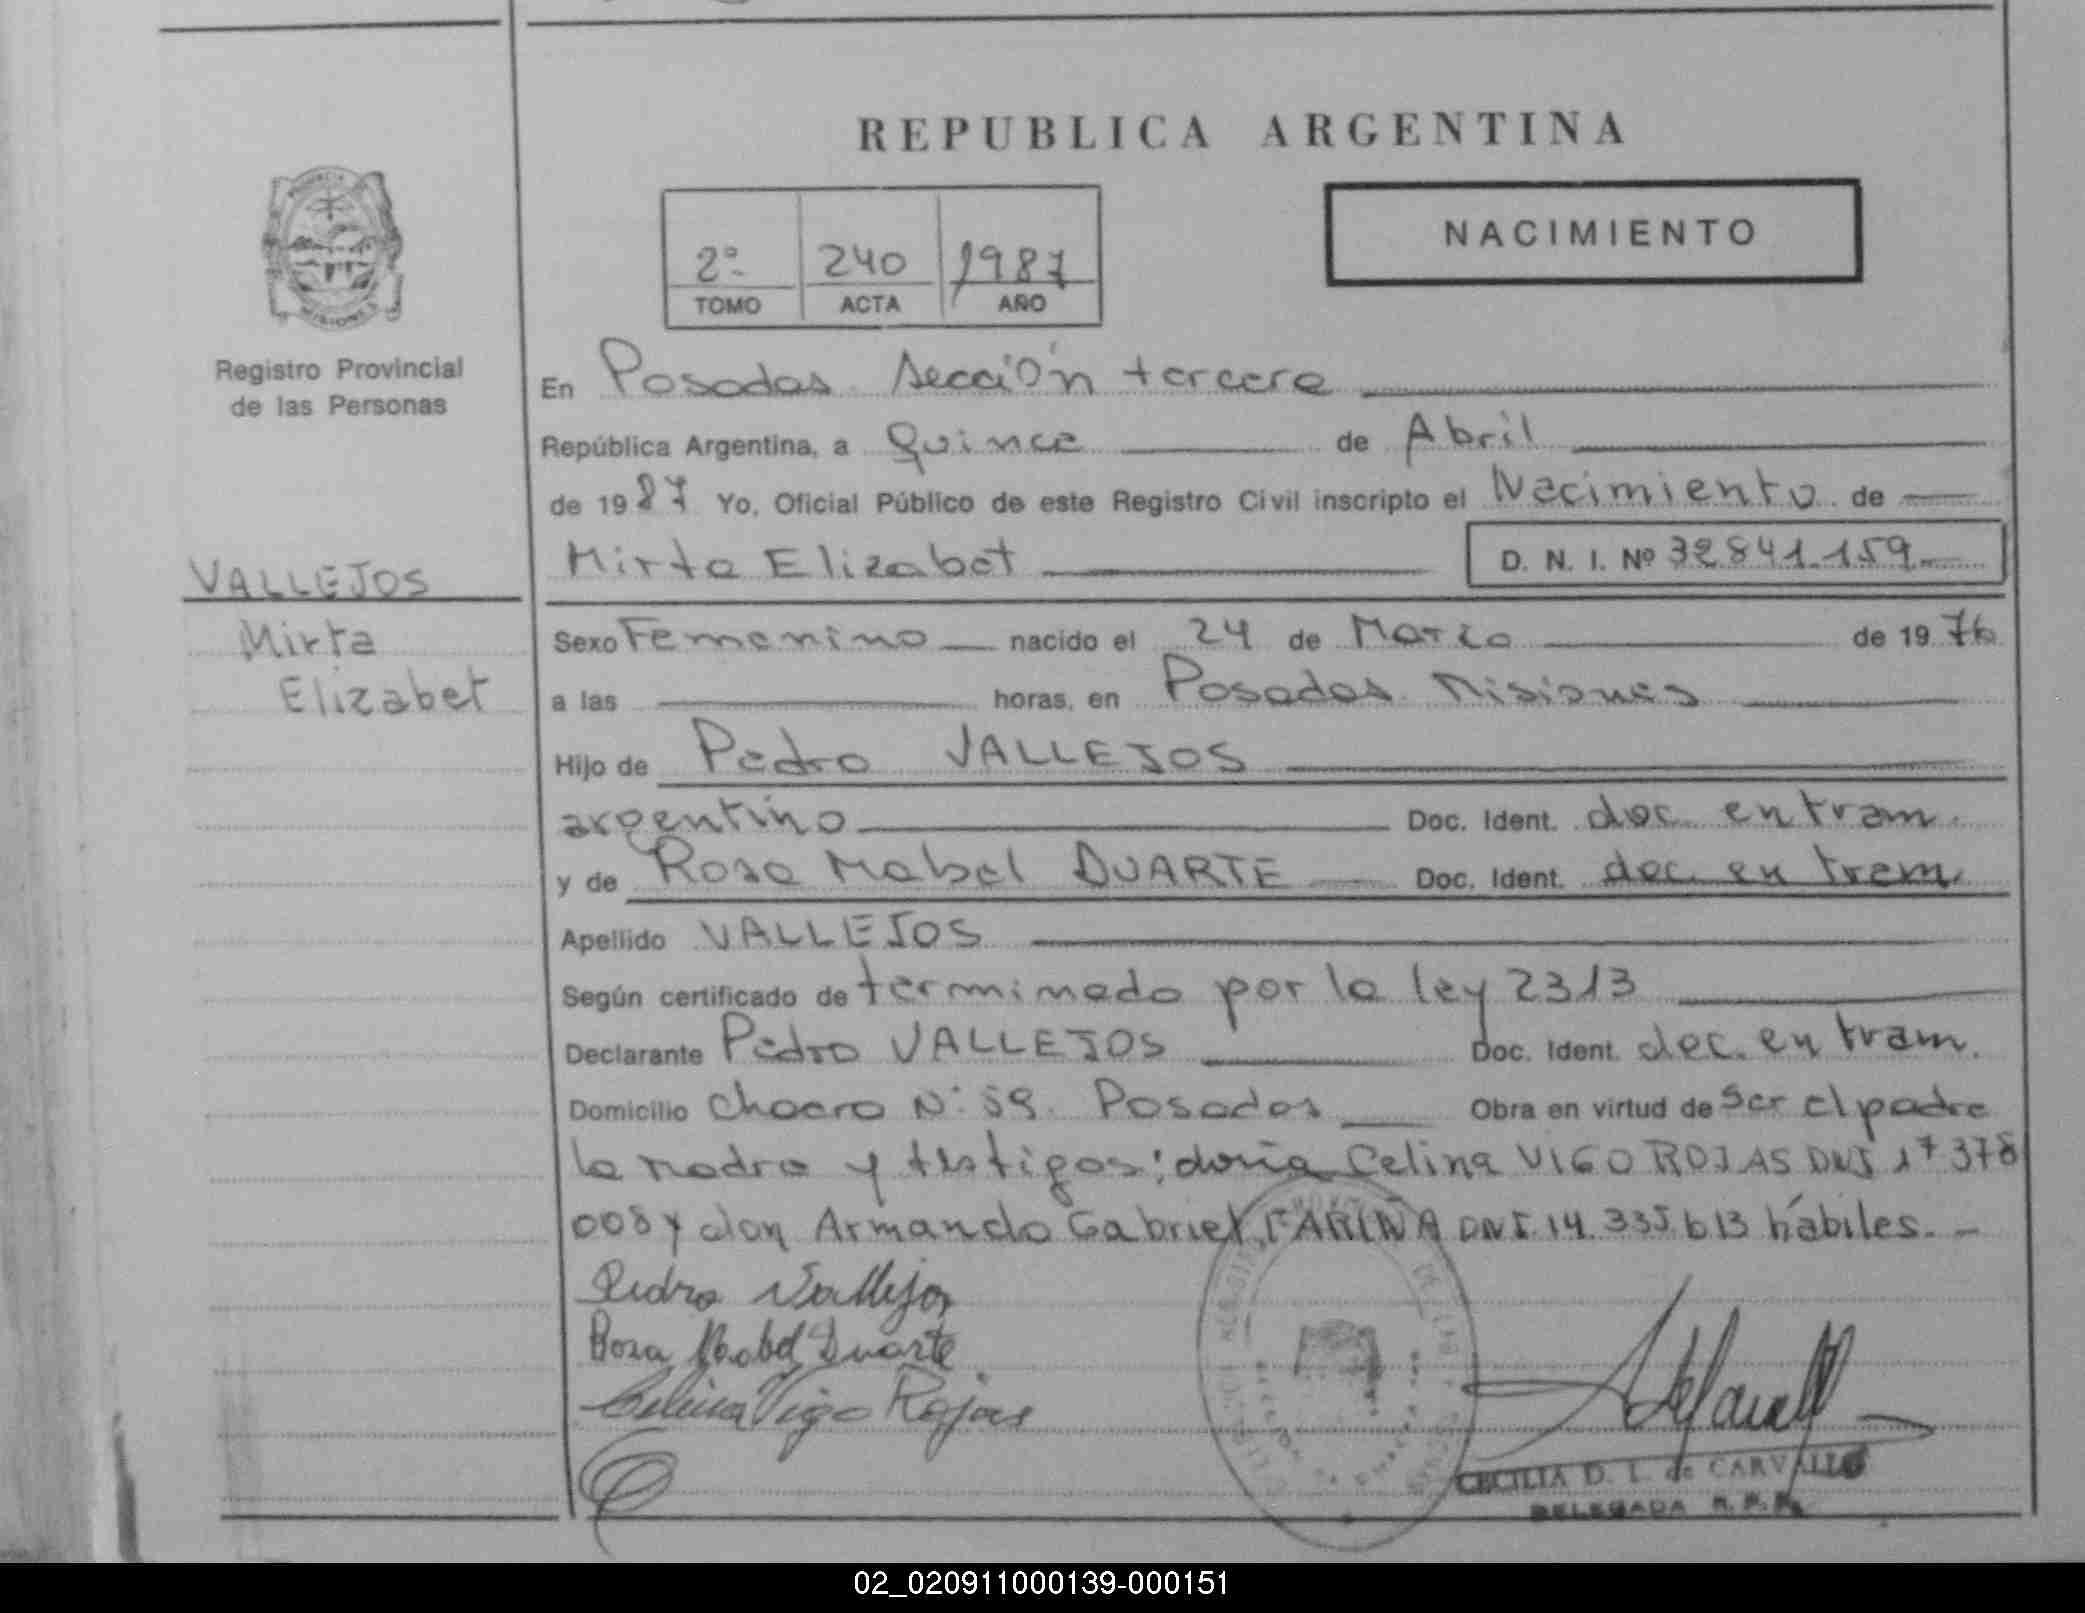 REPUBLICA ARGENTINA
NACIMIENTO
2º 240 1987
TOMO ACTA AÑO
PROVINCIA
MISIONES
Registro Provincial
de las Personas
VALLEJOS
Mirta
Elizabet
En Posadas Sección tercera
República Argentina, a Quince de Abril
de 1987 Yo, Oficial Público de este Registro Civil inscripto el Nacimiento de
Mirta Elizabet D. N. I. Nº 32841.159
Sexo Femenino nacido el 24 de Marzo de 1976
a las horas, en Posadas Misiones
Hijo de Pedro VALLEJOS
argentino Doc. Ident. doc. en tram.
y de Rosa Mabel DUARTE Doc. Ident. doc. en tram.
Apellido VALLEJOS
Según certificado de terminado por la ley 2313
Declarante Pedro VALLEJOS Doc. Ident. doc. en tram.
Domicilio Chacra Nº 59. Posadas Obra en virtud de Ser el padre
la madre y testigos: doña Celina VIGO ROJAS DNI 17 378
008 y don Armando Gabriel FARIÑA DNI. 14.335.613 hábiles. -
Pedro Vallejos
Rosa Mabel Duarte
Celina Vigo Rojas
CECILIA D. L. de CARVALLO
DELEGADA R. P. P.
02_020911000139-000151